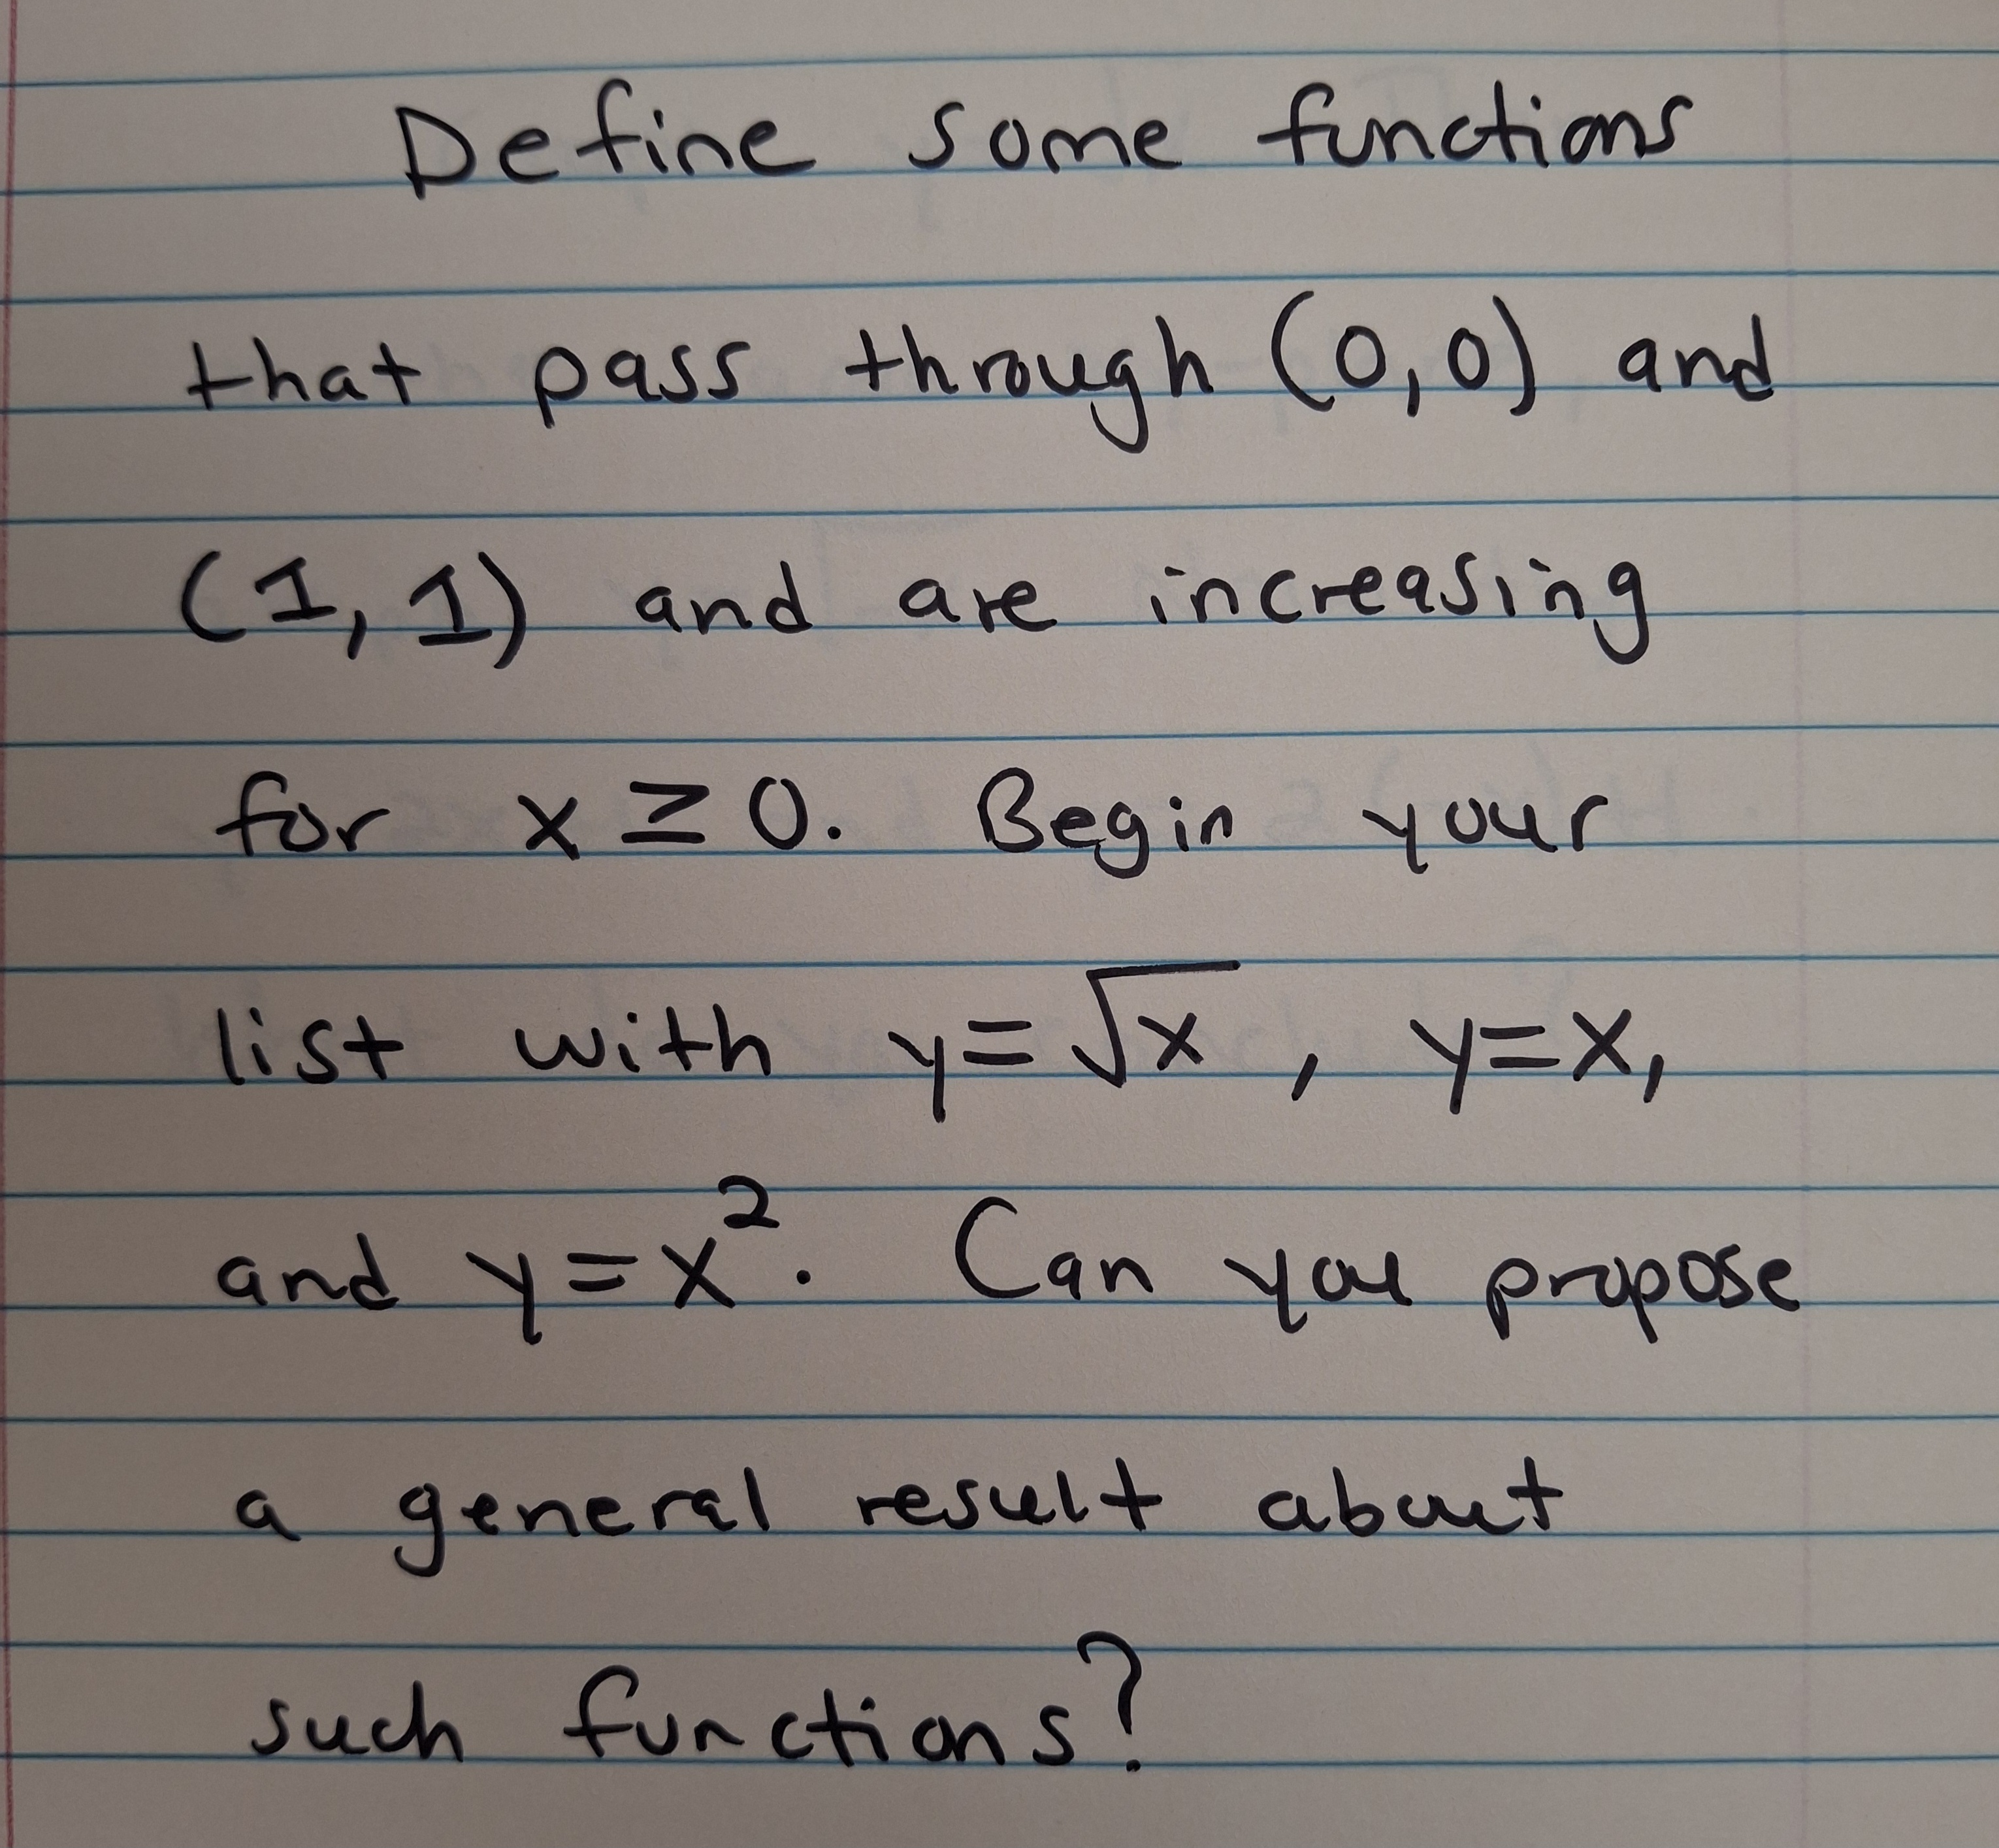 Define some functions
that pass through (0,0) and
(1,1) and are increasing
for x ≥ 0. Begin your
list with y=√x, y=x,
and y=x². Can you propose
a general result about
such functions?